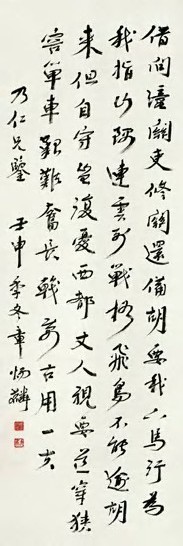 借問潼關吏修關還備胡要我下馬行為
我指山隅連雲列戰格飛鳥不能逾胡
來但自守豈復憂西都丈人視要處窄狹
容單車艱難奮長戟萬古用一夫
乃仁兄鑒 壬申季冬章炳麟